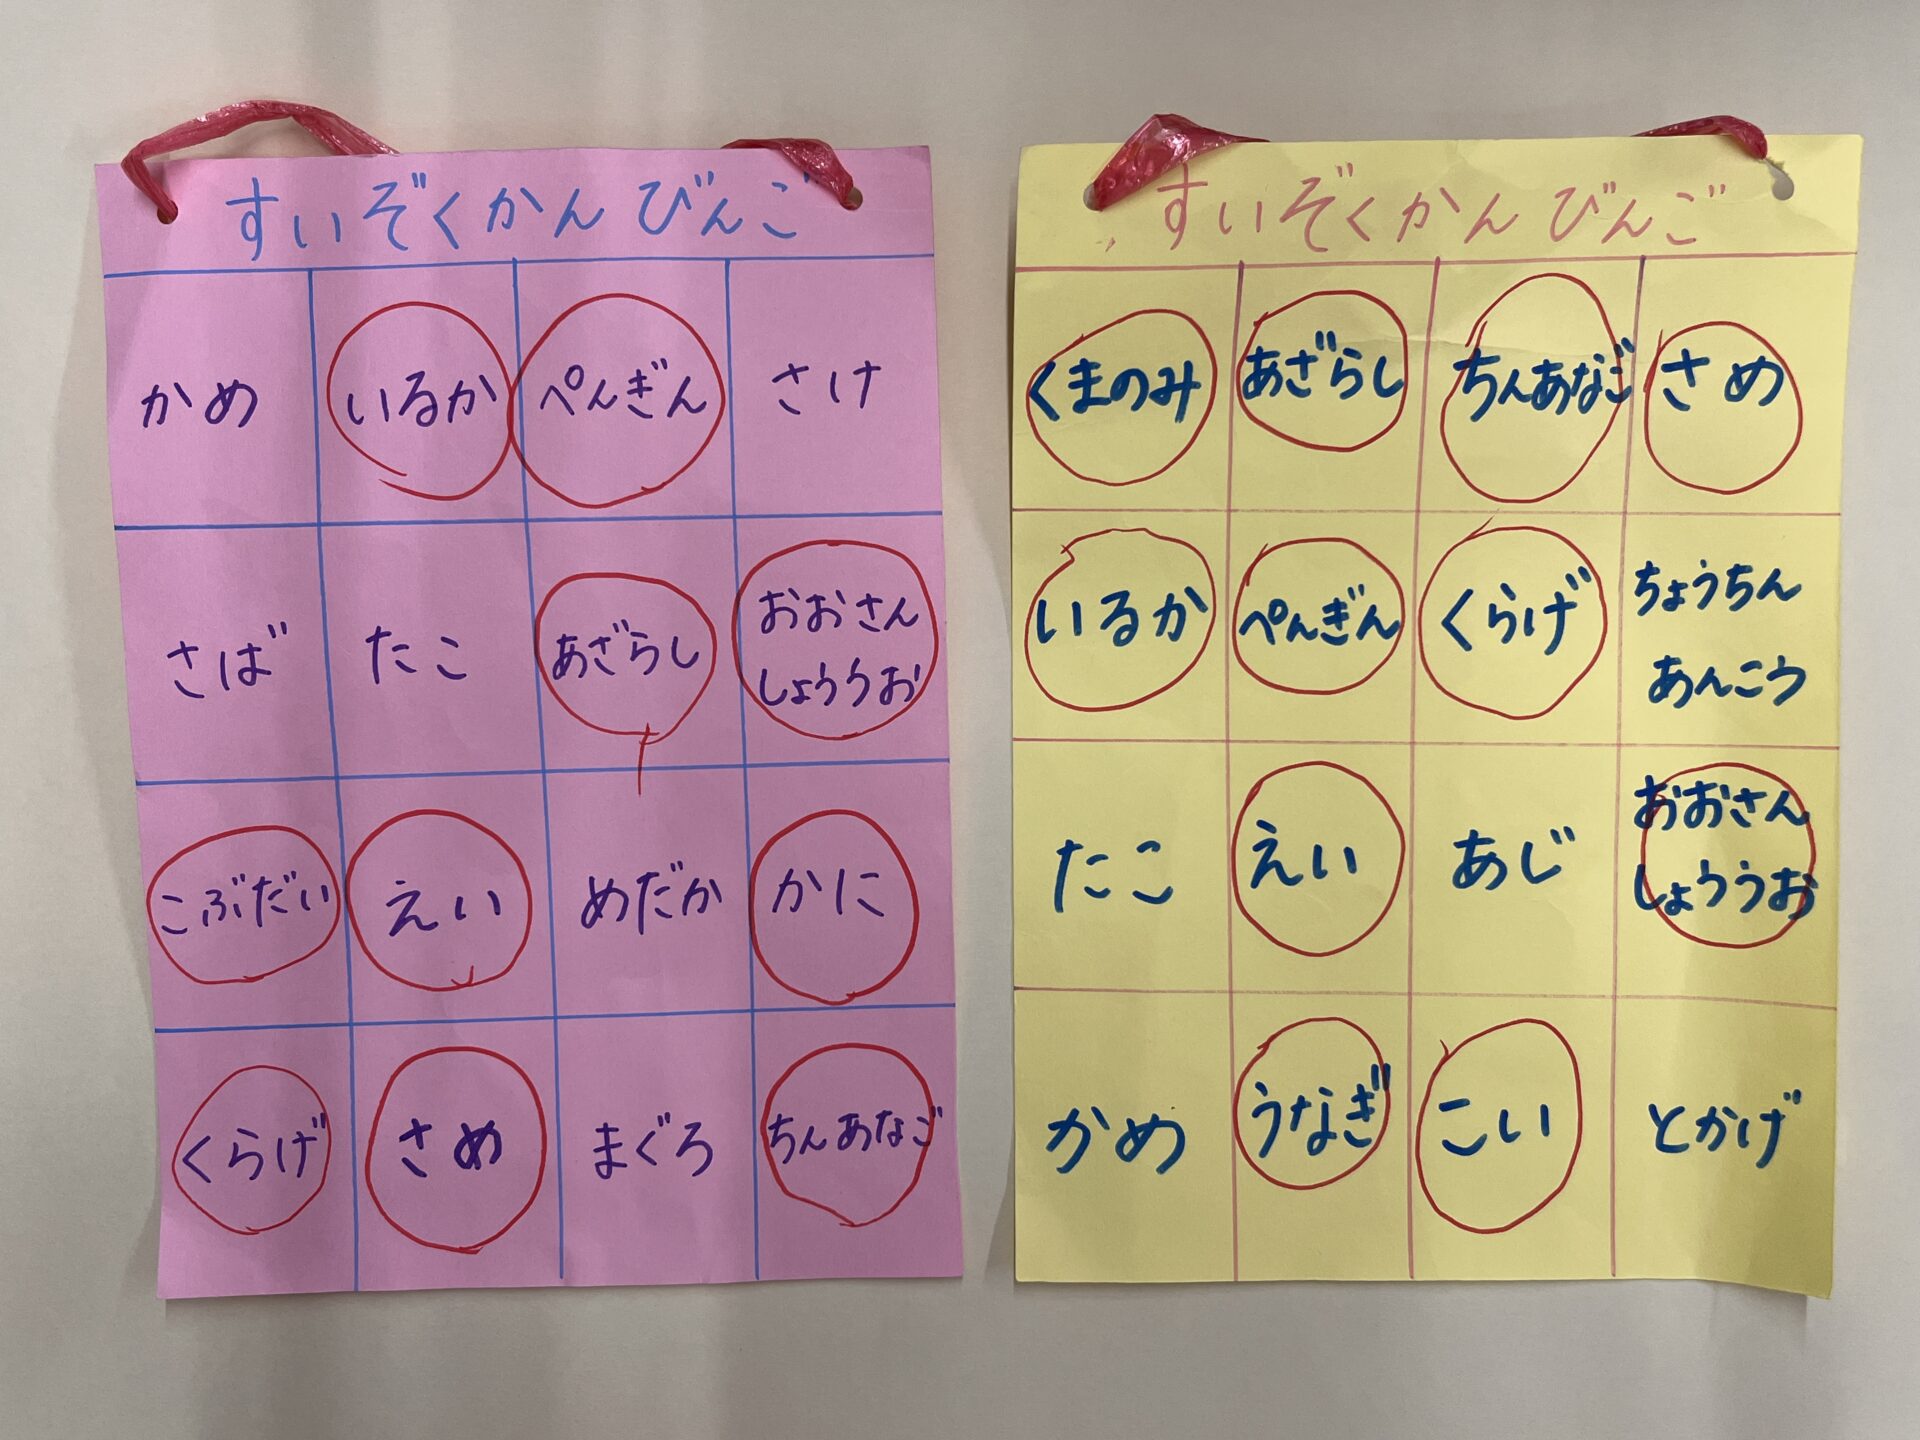 すいぞくかん びんご
かめ いるか ぺんぎん さけ
さば たこ あざらし おおさん
しょううお
こぶだい えい めだか かに
くらげ さめ まぐろ ちんあなご
すいぞくかん びんご
くまのみ あざらし ちんあなご さめ
いるか ぺんぎん くらげ ちょうちん
あんこう
たこ えい あじ おおさん
しょううお
かめ うなぎ こい とかげ